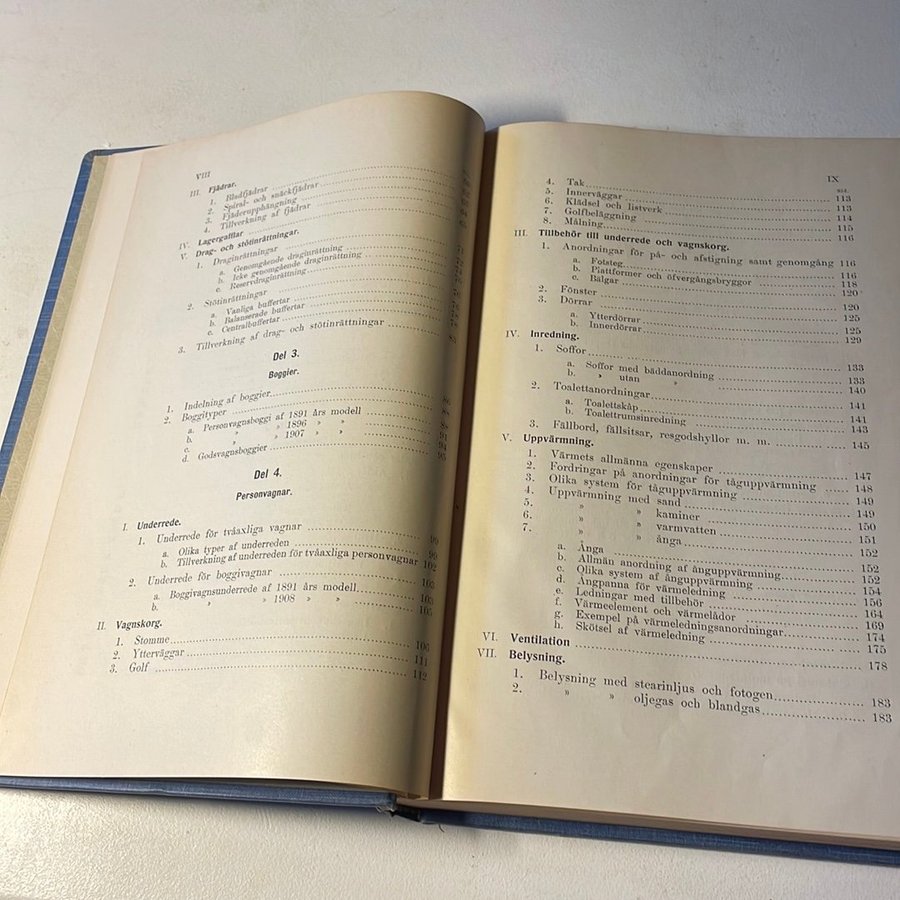 VIII
III. Fjädrar.
1. Bladfjädrar
2. Spiral- och snäckfjädrar
3. Fjäderupphängning
4. Tillverkning af fjädrar
IV. Lagergafflar
V. Drag- och stötinrättningar.
1. Draginrättningar
a. Genomgående draginrättning
b. Icke genomgående draginrättning
c. Reservdraginrättning
2. Stötinrättningar
a. Vanliga buffertar
b. Balanserade buffertar
c. Centralbuffertar
3. Tillverkning af drag- och stötinrättningar
Del 3.
Boggier.
1. Indelning af boggier
2. Boggityper
a. Personvagnsboggi af 1891 års modell
b. » » 1896 » »
c. » » 1907 » »
d. Godsvagnsboggier 95
Del 4.
Personvagnar.
I. Underrede.
1. Underrede för tvåaxliga vagnar 99
a. Olika typer af underreden 99
b. Tillverkning af underreden för tvåaxliga personvagnar 102
2. Underrede för boggivagnar 103
a. Boggivagnsunderrede af 1891 års modell 103
b. » » 1908 » » 105
II. Vagnskorg.
1. Stomme 106
2. Ytterväggar 111
3. Golf 112
IX
Sid.
4. Tak 113
5. Innerväggar 113
6. Klädsel och listverk 114
7. Golfbeläggning 115
8. Målning 116
III. Tillbehör till underrede och vagnskorg.
1. Anordningar för på- och afstigning samt genomgång 116
a. Fotsteg 116
b. Plattformer och öfvergångsbryggor 118
c. Bälgar 120
2. Fönster 120
3. Dörrar 125
a. Ytterdörrar 125
b. Innerdörrar 129
IV. Inredning.
1. Soffor 133
a. Soffor med bäddanordning 133
b. » utan » 140
2. Toalettanordningar 141
a. Toalettskåp 141
b. Toalettrumsinredning 143
3. Fällbord, fällsitsar, resgodshyllor m. m. 145
V. Uppvärmning.
1. Värmets allmänna egenskaper 147
2. Fordringar på anordningar för tåguppvärmning 148
3. Olika system för tåguppvärmning 149
4. Uppvärmning med sand 149
5. » » kaminer 150
6. » » varmvatten 151
7. » » ånga 152
a. Ånga 152
b. Allmän anordning af ånguppvärmning 152
c. Olika system af ånguppvärmning 154
d. Ångpanna för värmeledning 156
e. Ledningar med tillbehör 164
f. Värmeelement och värmelådor 169
g. Exempel på värmeledningsanordningar 174
h. Skötsel af värmeledning 175
VI. Ventilation 178
VII. Belysning.
1. Belysning med stearinljus och fotogen 183
2. » » oljegas och blandgas 183